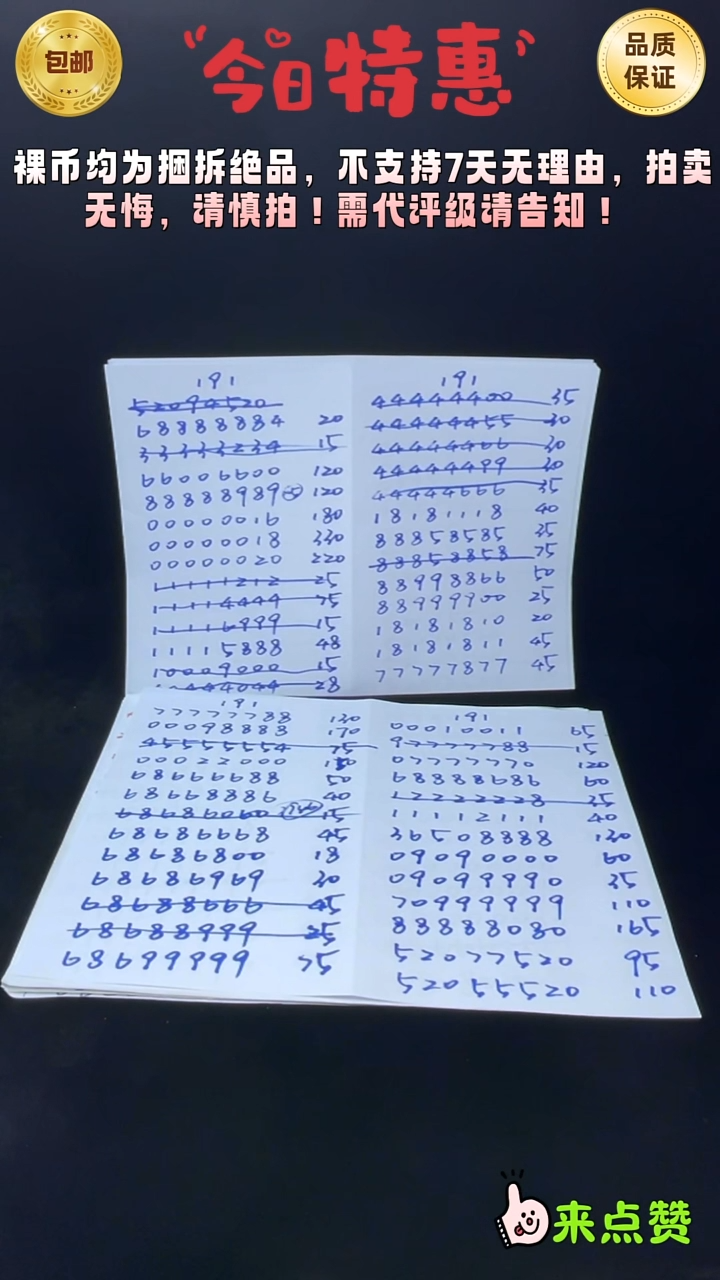 包邮
今日特惠
品质
保证
裸币均为捆拆绝品，不支持7天无理由，拍卖
无悔，请慎拍！需代评级请告知！
191
52094520
68888884 20
33333234 15
66006600 120
88888989 120
00000016 180
00000018 330
00000020 220
11111212 25
11114444 75
11116999 15
11115888 48
10009000 15
10444044 28
191
44444400 35
44444455 30
44444466 30
44444499 30
44444666 35
18181118 40
88858585 35
88858858 75
88998866 50
88999900 25
18181810 20
18181811 45
77777877 45
191
77777788 130
00098888 170
45555554 75
00022000
68666688 50
68668886 40
68686060 15
68686668 45
68686800 18
68686969 30
68688666 45
68688999 25
68699999 75
191
00010011 65
97777788 15
07777770 120
68888686 60
12222228 35
11112111 40
36508888 130
09090000 60
09099990 35
70999999 110
88888080 165
52077520 95
52055520 110
来点赞